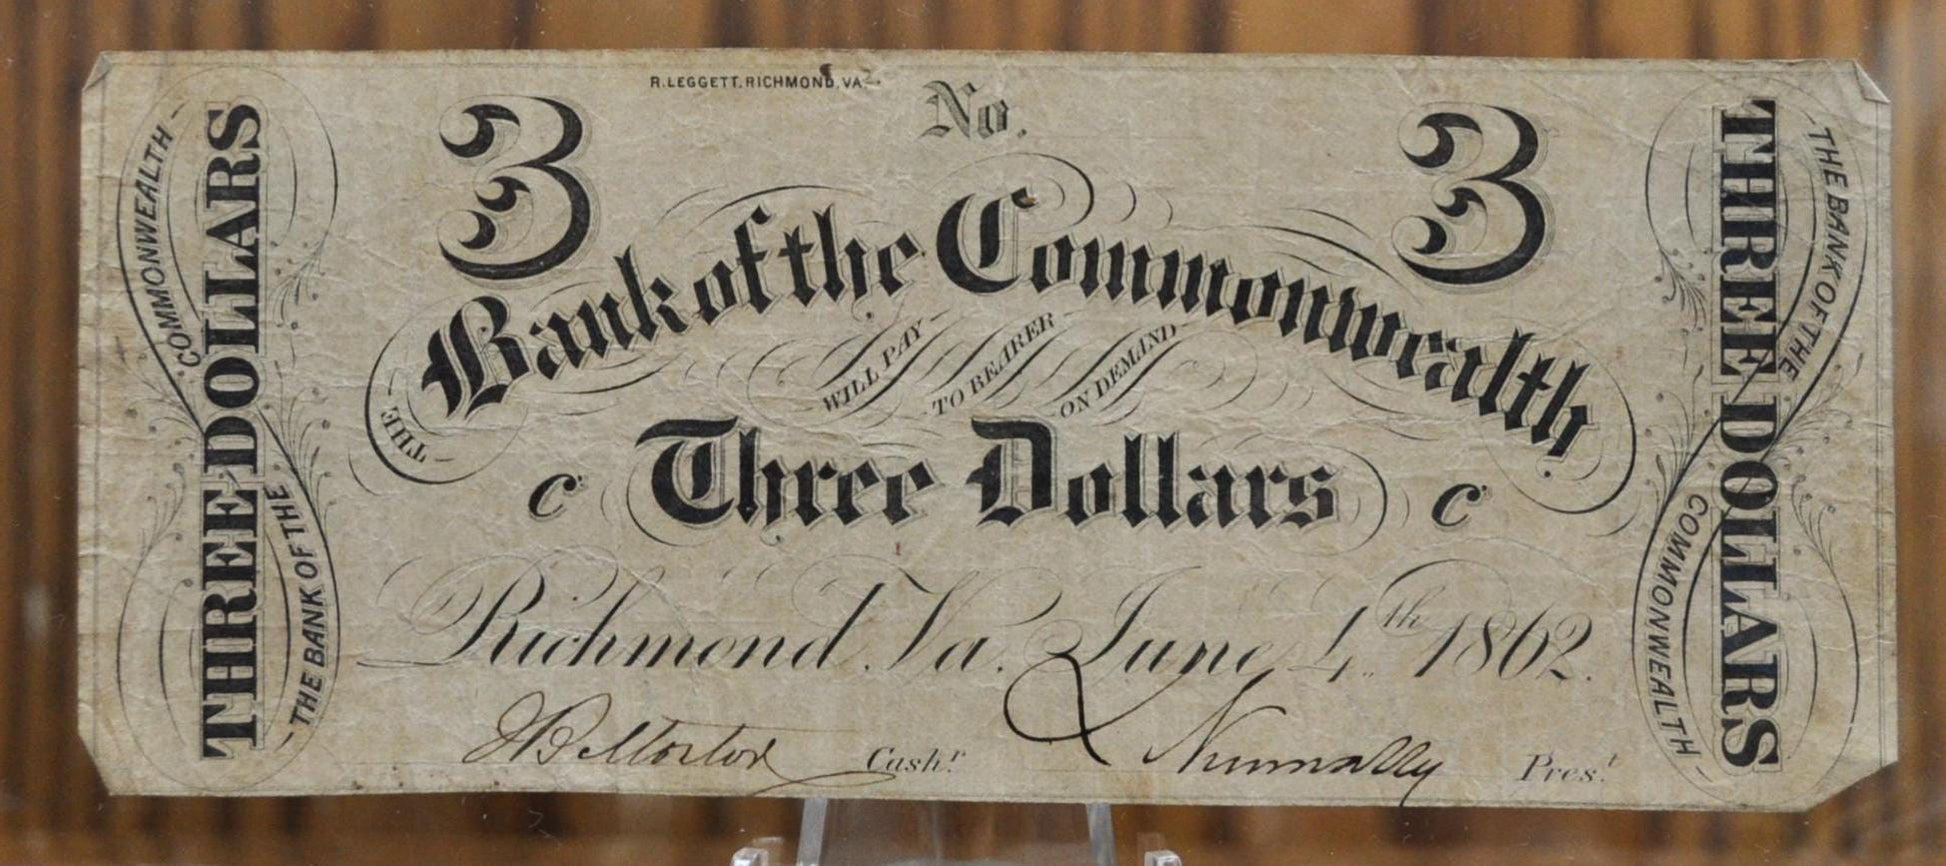 R. LEGGETT, RICHMOND, VA.
No.
3
3
THREE DOLLARS
THE BANK OF THE COMMONWEALTH
THE
Bank of the Commonwealth
WILL PAY TO BEARER ON DEMAND
C Three Dollars C
Richmond Va. June 4th 1862.
Cashr
Nunnally Prest
THREE DOLLARS
THE BANK OF THE COMMONWEALTH